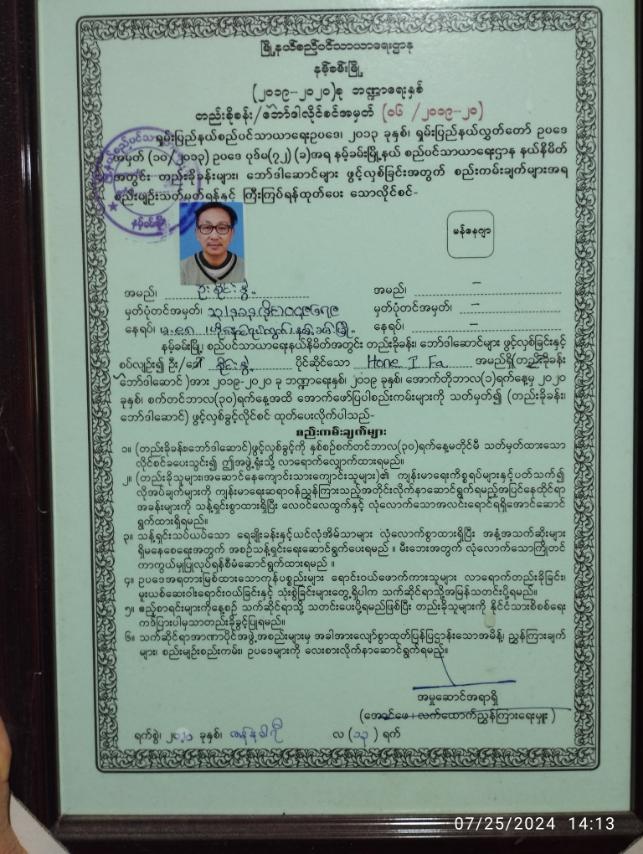 မြို့နယ်စည်ပင်သာယာရေးဌာန
နမ့်ခမ်းမြို့
(၂၀၁၉-၂၀၂၀)ခု ဘဏ္ဍာရေးနှစ်
တည်းခိုခန်း/ဘော်ဒါလိုင်စင်အမှတ် (၀၆ /၂၀၁၉-၂၀)
ရှမ်းပြည်နယ်စည်ပင်သာယာရေးဥပဒေ၊ ၂၀၁၃ ခုနှစ်၊ ရှမ်းပြည်နယ်လွှတ်တော် ဥပဒေ
အမှတ် (၁၀/၂၀၁၃) ဥပဒေ ပုဒ်မ(၇၂) (ခ)အရ နမ့်ခမ်းမြို့နယ် စည်ပင်သာယာရေးဌာန နယ်နိမိတ်
အတွင်း တည်းခိုခန်းများ၊ ဘော်ဒါဆောင်များ ဖွင့်လှစ်ခြင်းအတွက် စည်းကမ်းချက်များအရ
စည်းမျဉ်းသတ်မှတ်ရန်နှင့် ကြီးကြပ်ရန်ထုတ်ပေး သောလိုင်စင်-
မန်နေဂျာ
အမည်၊ ဦးစိုင်း အမည်၊ –
မှတ်ပုံတင်အမှတ်၊ မှတ်ပုံတင်အမှတ်၊ –
နေရပ်၊ နေရပ်၊ –
နမ့်ခမ်းမြို့ စည်ပင်သာယာရေးနယ်နိမိတ်အတွင်း တည်းခိုခန်း၊ ဘော်ဒါဆောင်များ ဖွင့်လှစ်ခြင်းနှင့်
စပ်လျဉ်း၍ ဦး/ဒေါ် စိုင်း ပိုင်ဆိုင်သော Hone I Fa အမည်ရှိ(တည်းခိုခန်း
ဘော်ဒါဆောင် )အား ၂၀၁၉-၂၀၂၀ ခု ဘဏ္ဍာရေးနှစ်၊ ၂၀၁၉ ခုနှစ်၊ အောက်တိုဘာလ(၁)ရက်နေ့မှ ၂၀၂၀
ခုနှစ်၊ စက်တင်ဘာလ(၃၀)ရက်နေ့အထိ အောက်ဖော်ပြပါစည်းကမ်းများကို သတ်မှတ်၍ (တည်းခိုခန်း၊
ဘော်ဒါဆောင်) ဖွင့်လှစ်ခွင့်လိုင်စင် ထုတ်ပေးလိုက်ပါသည်-
စည်းကမ်းချက်များ
၁။ (တည်းခိုခန်း၊ဘော်ဒါဆောင်)ဖွင့်လှစ်ခွင့်ကို နှစ်စဉ်စက်တင်ဘာလ(၃၀)ရက်နေ့မတိုင်မီ သတ်မှတ်ထားသော
လိုင်စင်ခပေးသွင်း၍ ဤအဖွဲ့ရုံးသို့ လာရောက်လျှောက်ထားရမည်။
၂။ (တည်းခိုသူများ၊အဆောင်နေကျောင်းသားကျောင်းသူများ)၏ ကျန်းမာရေးကိစ္စရပ်များနှင့်ပတ်သက်၍
လိုအပ်ချက်များကို ကျန်းမာရေးဆရာဝန်ညွှန်ကြားသည့်အတိုင်းလိုက်နာဆောင်ရွက်ရမည့်အပြင်နေထိုင်ရာ
အခန်းများကို သန့်ရှင်းစွာထားရှိပြီး လေဝင်လေထွက်နှင့် လုံလောက်သောအလင်းရောင်ရရှိအောင်ဆောင်
ရွက်ထားရှိရမည်။
၃။ သန့်ရှင်းသပ်ယပ်သော ရေချိုးခန်းနှင့်ယင်လုံအိမ်သာများ လုံလောက်စွာထားရှိပြီး အနံ့အသက်ဆိုးများ
ရှိမနေစေရေးအတွက် အစဉ်သန့်ရှင်းရေးဆောင်ရွက်ပေးရမည် ။ မီးဘေးအတွက် လုံလောက်သောကြိုတင်
ကာကွယ်မှုပြုလုပ်ရန်စီမံဆောင်ရွက်ထားရမည် ။
၄။ ဥပဒေအရတားမြစ်ထားသောကုန်ပစ္စည်းများ ရောင်းဝယ်ဖောက်ကားသူများ လာရောက်တည်းခိုခြင်း၊
မူးယစ်ဆေးဝါးရောင်းဝယ်ခြင်းနှင့် သုံးစွဲခြင်းများတွေ့ရှိပါက သက်ဆိုင်ရာသို့အမြန်သတင်းပို့ရမည်။
၅။ ဧည့်စာရင်းများကိုနေ့စဉ် သက်ဆိုင်ရာသို့ သတင်းပေးပို့ရမည်ဖြစ်ပြီး တည်းခိုသူများကို နိုင်ငံသားစိစစ်ရေး
ကဒ်ပြားပါမှသာတည်းခိုခွင့်ပြုရမည်။
၆။ သက်ဆိုင်ရာအာဏာပိုင်အဖွဲ့အစည်းများမှ အခါအားလျော်စွာထုတ်ပြန်ပြဋ္ဌာန်းသောအမိန့်၊ ညွှန်ကြားချက်
များ၊ စည်းမျဉ်းစည်းကမ်း၊ ဥပဒေများကို လေးစားလိုက်နာဆောင်ရွက်ရမည်။
အမှုဆောင်အရာရှိ
လက်ထောက်ညွှန်ကြားရေးမှူး )
ရက်စွဲ၊ ၂၀၂၀ ခုနှစ်၊ ဇန်နဝါရီ လ ရက်
07/25/2024 14:13